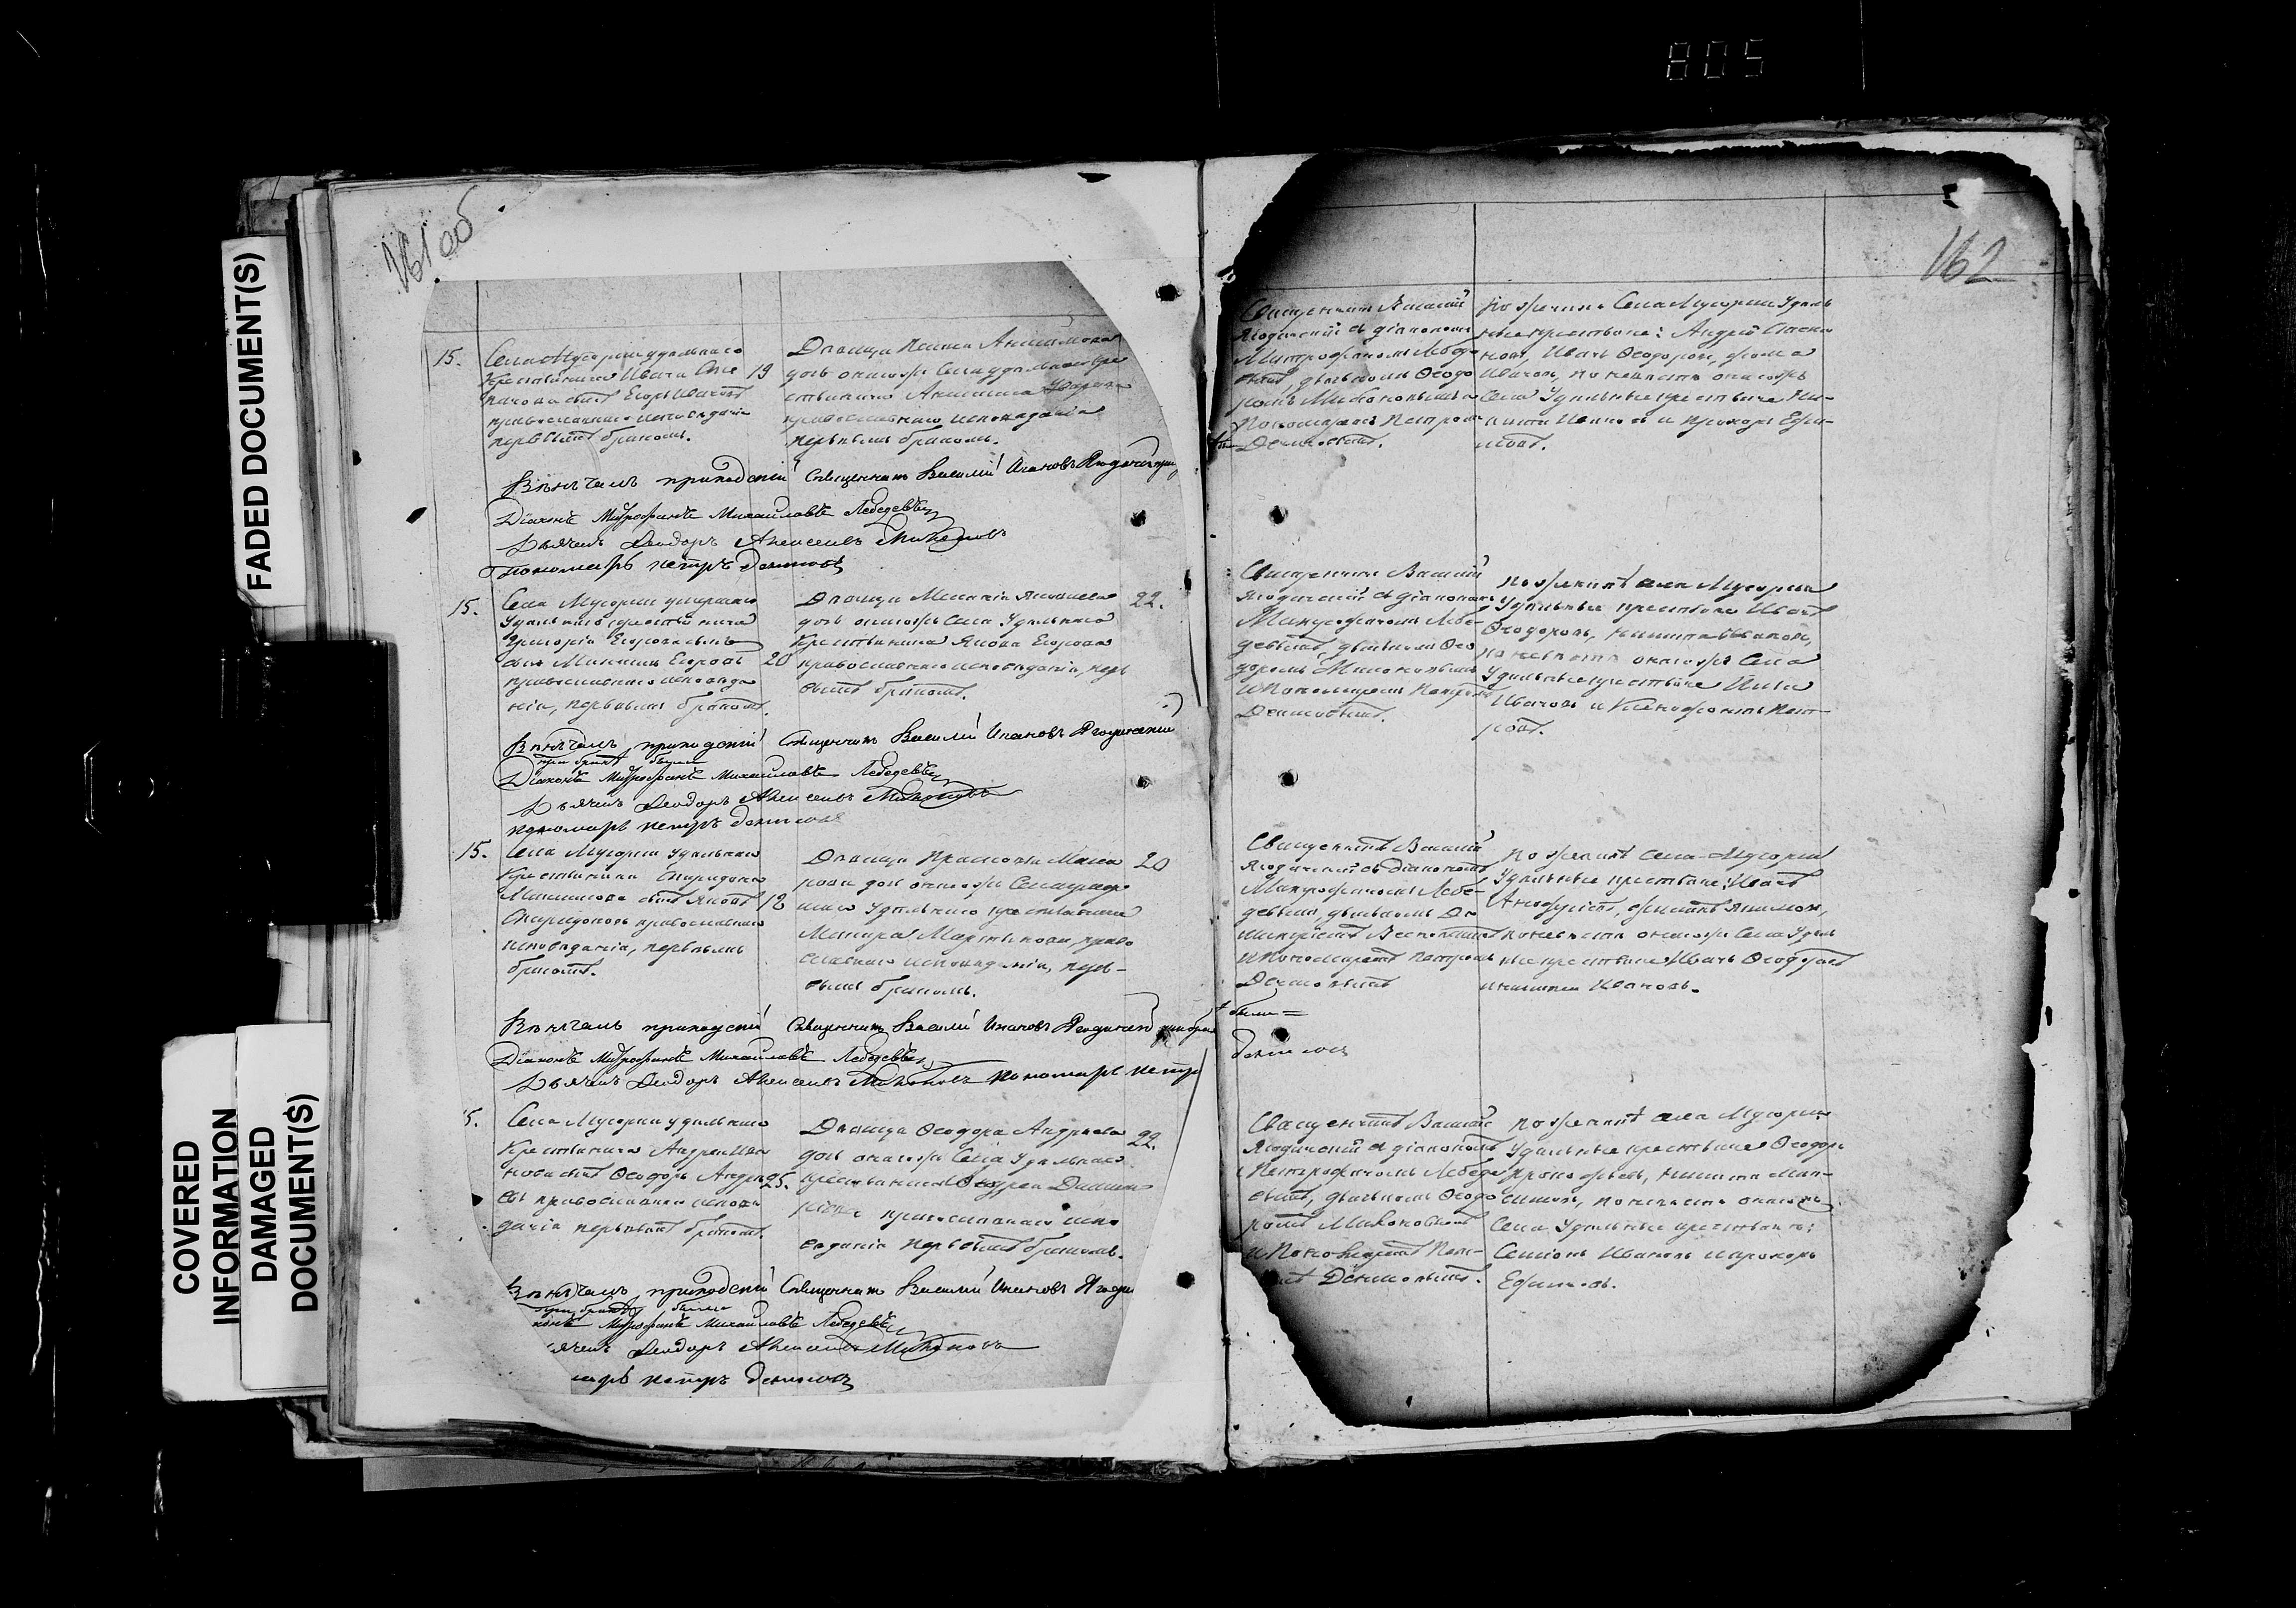 805
FADED DOCUMENT(S)
COVERED
INFORMATION
DAMAGED
DOCUMENT(S)
161 об
162
15.
Села Мусорки удельнаго
крестьянина Ивана
сынъ Егоръ Ивановъ
православнаго исповеданія
первымъ бракомъ.
19
Девица
дочь онагожъ Села удельнаго кре
стьянина
православнаго исповеданія
первымъ бракомъ.
Венчалъ приходскій Священникъ Василій Ивановъ Ягодинскій
Діаконъ Митрофанъ Михайловъ Лебедевъ
Дьячекъ Феодоръ Алексеевъ Милоновъ
Пономарь Петръ Денисовъ
15.
Села Мусорки умершаго
Удельнаго крестьянина
Григорія Егорова сынъ
Егоровъ
православнаго исповеда
нія, первымъ бракомъ.
20
Девица Яковлева
дочь онагожъ Села Удельнаго
Крестьянина Якова Егорова
православнаго исповеданія, пер
вымъ бракомъ.
22.
Венчалъ приходскій Священникъ Василій Ивановъ Ягодинскій
при браке были
Діаконъ Митрофанъ Михайловъ Лебедевъ
Дьячекъ Феодоръ Алексеевъ Милоновъ
пономарь петръ денисовъ
15.
Села Мусорки Удельнаго
Крестьянина Спиридона
Максимова сынъ
Спиридоновъ православнаго
исповеданія, первымъ
бракомъ.
18
Девица Прасковья
дочь онагожъ Села
Удельнаго крестьянина
Мартынова, право
славнаго исповеданія, пер-
вымъ бракомъ.
20
Венчалъ приходскій Священникъ Василій Ивановъ Ягодинскій
были =
Діаконъ Митрофанъ Михайловъ Лебедевъ
Дьячекъ Феодоръ Алексеевъ Милоновъ пономарь петръ
денисовъ
5.
Села Мусорки удельнаго
Крестьянина Андрея Ива
нова сынъ Ѳеодоръ Андре
евъ православнаго испове
данія первымъ бракомъ.
25.
Девица Ѳеодора Андреева
дочь онагожъ Села Удельнаго
крестьянина Андрея
православнаго испо
веданія первымъ бракомъ.
22.
Венчалъ приходскій Священникъ Василій Ивановъ
при браке были
Митрофанъ Михайловъ Лебедевъ
Феодоръ Алексеевъ Милоновъ
петръ денисовъ
Священникъ Василій
Ягодинскій съ діакономъ
Митрофаномъ Лебеде
вымъ, дьячкомъ Ѳеодо
ромъ Милоновымъ и
Пономаремъ Петромъ
Денисовымъ.
По женихе Села Мусорки Удель
ные крестьяне: Андрей
Иванъ Ѳеодоровъ, Ѳома
Ивановъ, по невесте онагожъ
Села Удельные крестьяне Ни-
кита Ивановъ и Прохоръ Ефи-
мовъ.
Священникъ Василій
Ягодинскій съ діакономъ
Митрофаномъ Лебе-
девымъ, дьячкомъ Ѳео
доромъ Милоновымъ
и Пономаремъ Петромъ
Денисовымъ.
по женихе села Мусорки
Удельные крестьяне Иванъ
Ѳеодоровъ, Никита Ивановъ,
по невесте онагожъ Села
Удельные крестьяне
Ивановъ и Ксенофонтъ Пет-
ровъ.
Священникъ Василій
Ягодинскій съ діакономъ
Митрофаномъ Лебе-
девымъ, дьячкомъ
и Пономаремъ Петромъ
Денисовымъ
по женихе села Мусорки
Удельные крестьяне: Иванъ
по невесте онагожъ Села Удель
ные крестьяне Иванъ Ѳеодоровъ
и Никита Ивановъ.
Священникъ Василій
Ягодинскій съ діакономъ
Митрофаномъ Лебеде
вымъ, дьячкомъ Ѳеодо
ромъ Милоновымъ
и Пономаремъ Пет-
Денисовымъ.
по женихе села Мусорки
Удельные крестьяне Ѳеодоръ
Прокофьевъ, Никита Мак-
симовъ, по невесте онагожъ
Села Удельные крестьяне:
Семенъ Ивановъ и Прохоръ
Ефимовъ.